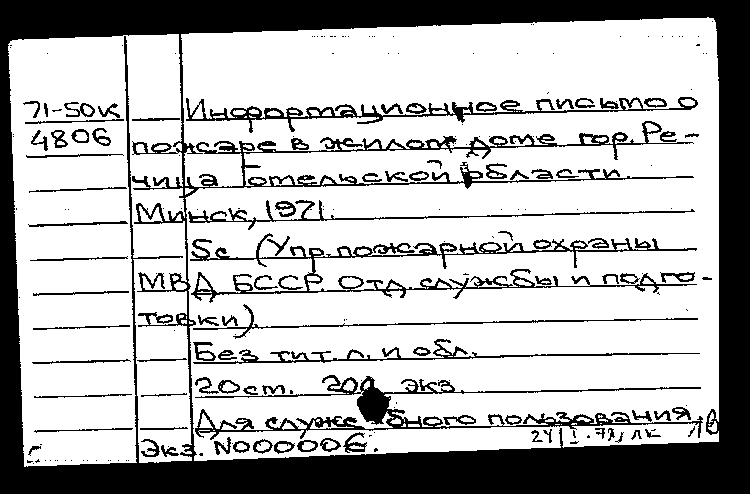 71-50к
4806
Информационное письмо о
пожаре в жилом доме гор. Ре-
чица Гомельской области.
Минск, 1971.
5с (Упр. пожарной охраны
МВД БССР. Отд. службы и подго-
товки).
Без тит. л. и обл.
20см. 200 экз.
Для служебного пользования.
Экз. N000006.
24/I-78, лк